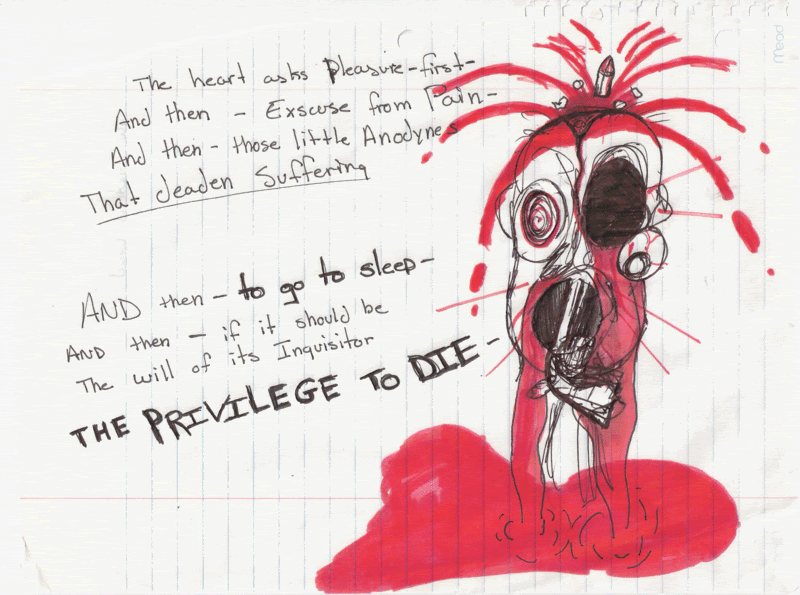 The heart asks Pleasure-first-
And then - Exscuse from Pain-
And then - those little Anodynes
That deaden Suffering
AND then - to go to sleep-
AND then - if it should be
The will of its Inquisitor
THE PRIVILEGE TO DIE-
Mead